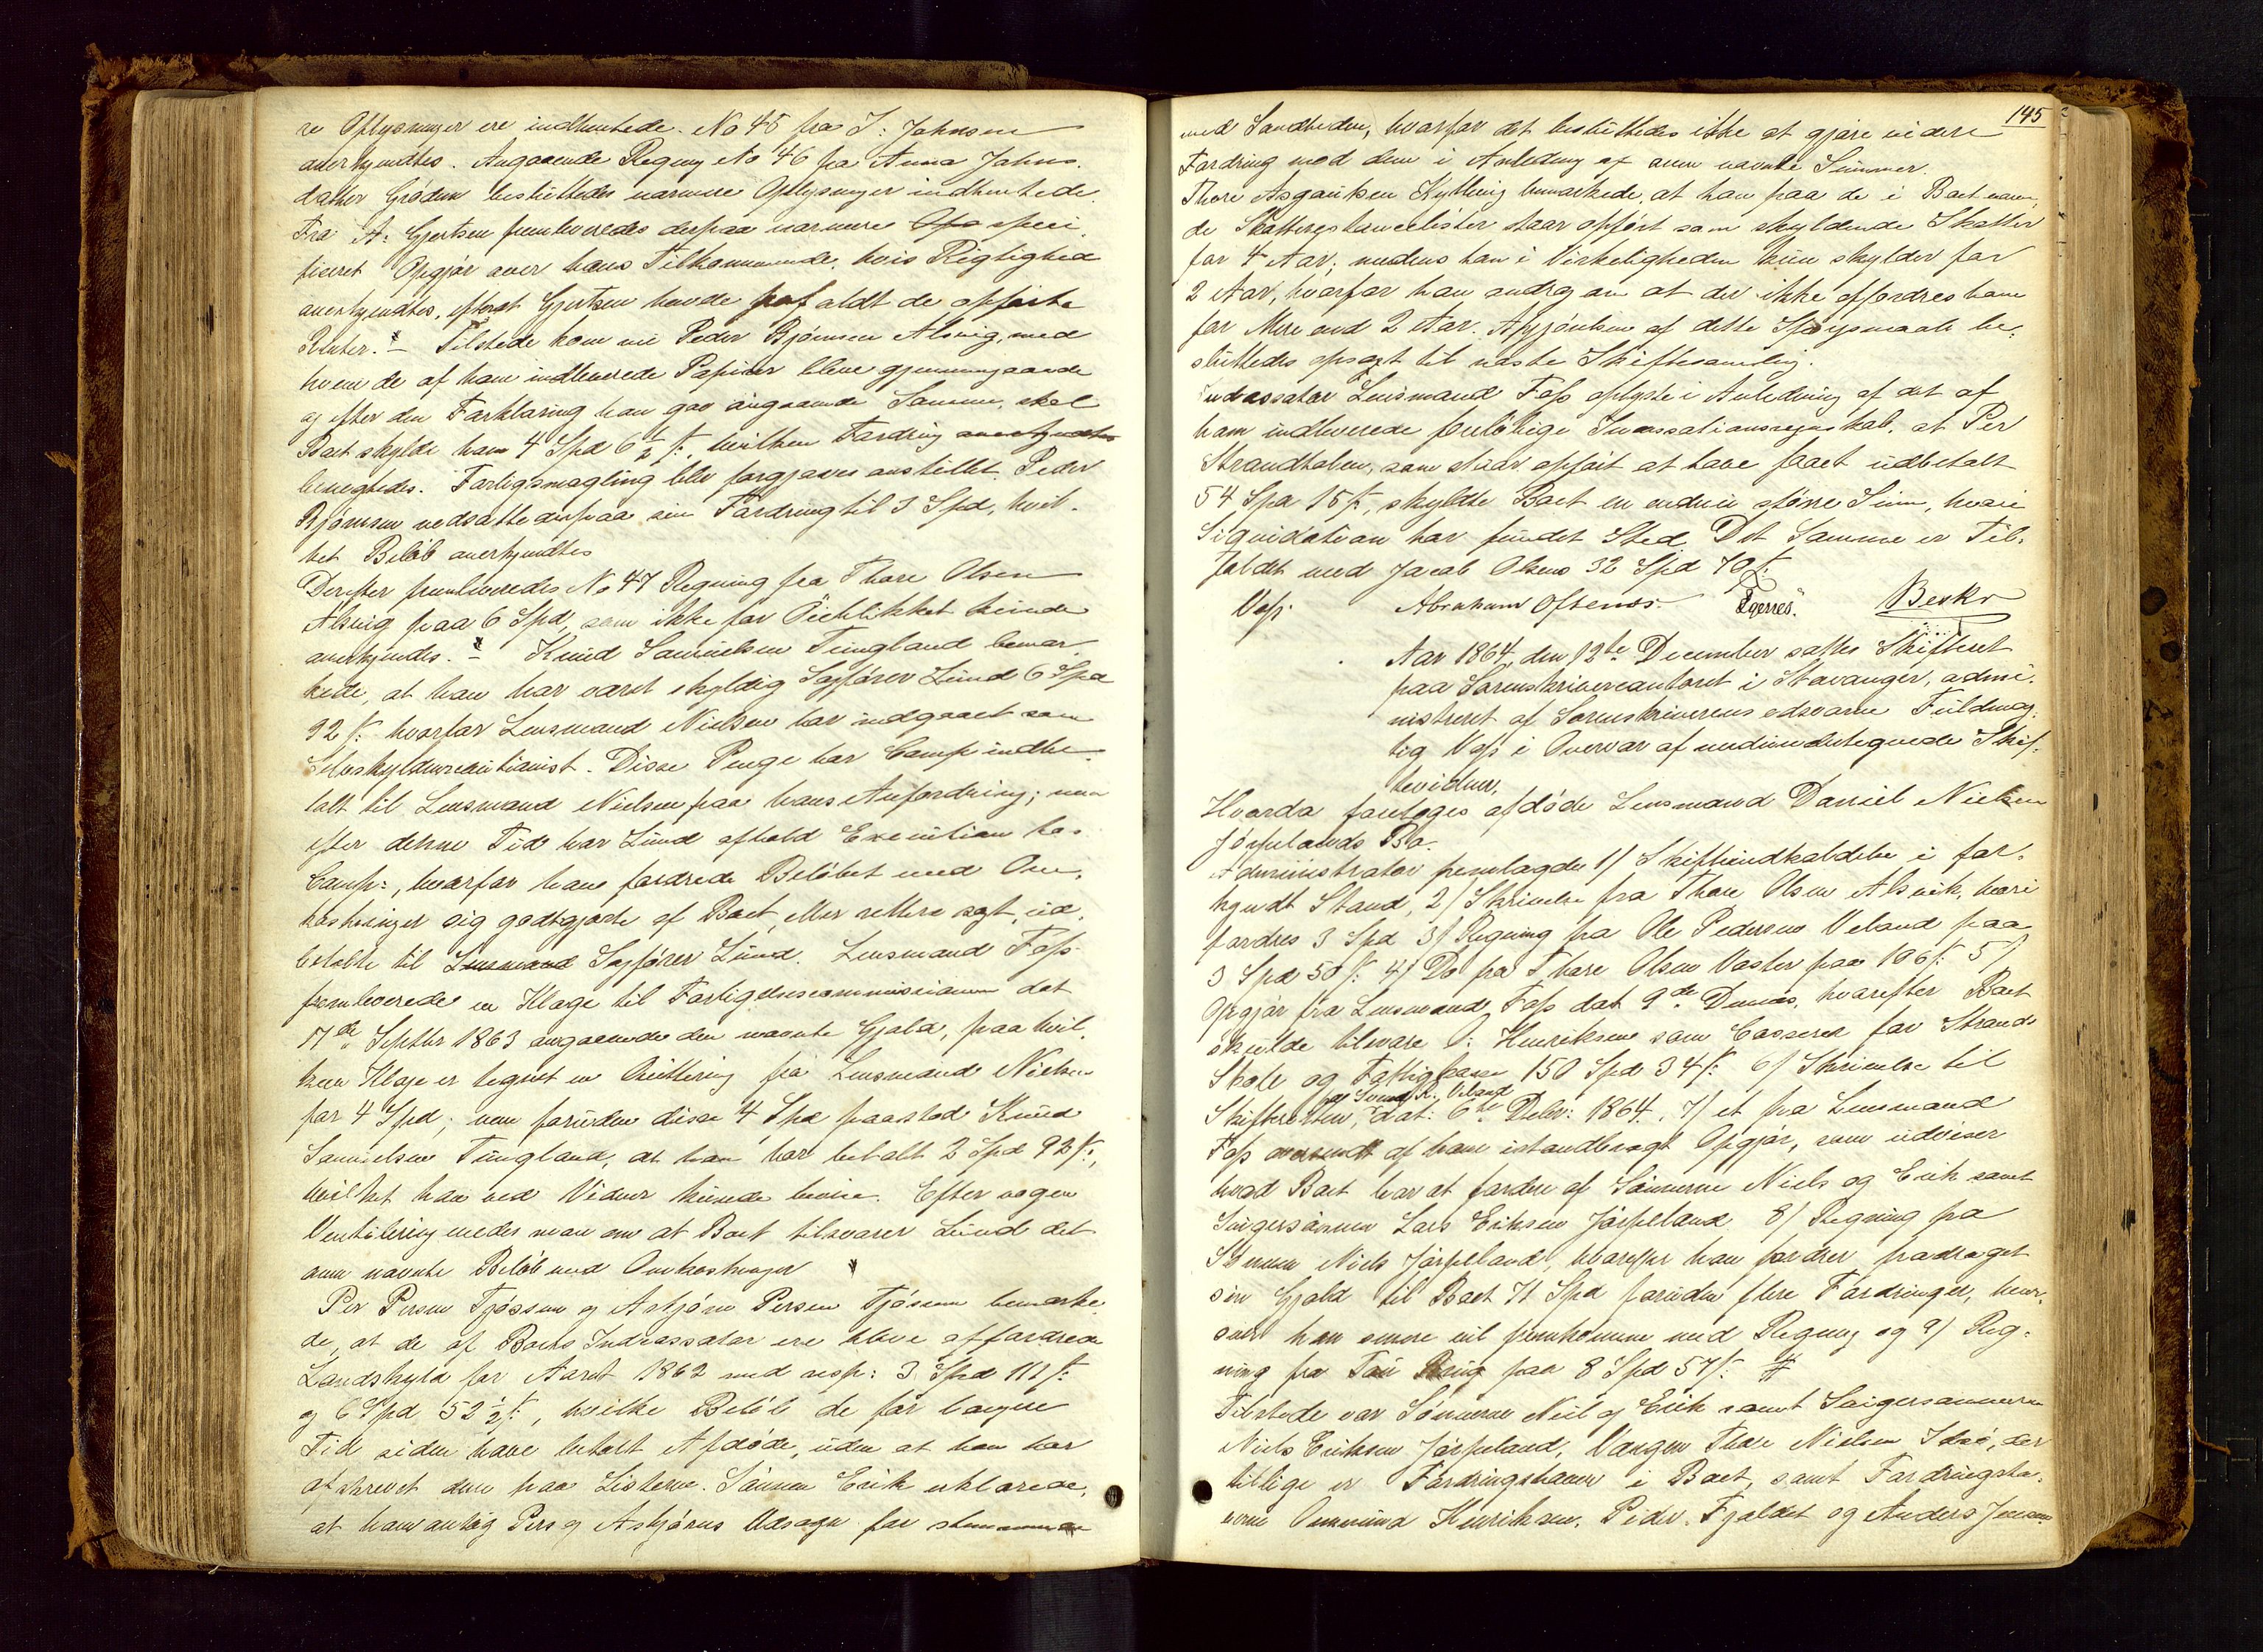 re Oplysninger ere indhentede. No 45 fra J: Johnsen
anerkjendtes. Angaaende Regning No 46 fra Anna Johns-
datter Grödem besluttedes nærmere Oplysninger indhentede.
Fra A: Gjertsen fremleveredes derpaa nærmere speci-
ficeret Opgjør over hans Tilkommende, hvis Rigtighed
anerkjendtes, efterat Gjertsen havde frafaldt de opførte
Renter. – Tilstede kom nu Peder Bjørnsen Alsvig, med
hvem de af ham indleverede Papirer bleve gjennemgaaede
og efter den Forklaring han gav angaaende Samme, skal
Boet skylde ham 4 Spd 6½ ß, hvilken Fordring anerkjendtes
benegtedes. Forligsmægling blev forgjæves anstillet. Peder
Bjørnsen nedsatte derpaa sin Fordring til 3 Spd, hvil-
ket Beløb anerkjendtes
Derefter fremleveredes No 47 Regning fra Thore Olsen
Alsvig paa 6 Spd, som ikke for Øieblikket kunde
anerkjendes. – Knud Samuelsen Tungland bemær-
kede, at han har været skyldig Sagfører Lund 6 Spd
92 ß hvorfor Lensmand Nielsen har indgaaet som
Selvskyldnercautionist. Disse Penge har Comp: indbe-
talt til Lensmand Nielsen paa hans Anfordring; men
efter denne Tid har Lund afholdt Execution hos
Comp:, hvorfor han fordrede Beløbet med Om-
kostninger sig godtgjorte af Boet, eller rettere sagt, ud-
betalte til Lensmand Sagfører Lund. Lensmand Foss
fremleverede en Klage til Forligelsescommissionen dat
17de Septbr 1863 angaaende den nævnte Gjæld, paa hvil-
ken Klage er tegnet en Qvittering fra Lensmand Nielsen
for 4 Spd; men foruden disse 4 Spd paastod Knud
Samuelsen Tungland, at han har betalt 2 Spd 92 ß,
hvilket han ved Vidner kunde bevise. Efter nogen
Ventilering enedes man om at Boet tilsvarer Lund det
oven nævnte Beløb med Omkostninger
Per Persen Tjøssem og Asbjørn Persen Tjøssem bemærke-
de, at de af Boets Incassator ere bleve affordrede
Landskyld for Aaret 1862 med resp: 3 Spd 112 ß
og 6 Spd 52½ ß, hvilke Beløb de for længere
Tid siden have betalt Afdøde, uden at han har
afskrevet dem paa Listerne. Sønnen Erik erklærede,
at han antog Pers og Asbjørns Udsagn for stemmende
145
med Sandheden, hvorfor det besluttedes ikke at gjøre videre
Fordring mod dem i Anledning af oven nævnte Summer.
Thore Asgautsen Kytling bemærkede, at han paa de i Boet værende
de Skatterestancelister staar opført som skyldende Skatter
for 4 Aar; medens han i Virkeligheden kun skylder for
2 Aar, hvorfor han androg om at der ikke affordres ham
for Mere end 2 Aar. Afgjørelsen af dette Spørgsmaal be-
sluttedes opsagt til næste Skiftesamling.
Incassator Lensmand Foss oplyste i Anledning af det af
ham indleverede foreløbige Incassationsregnskab, at Per
Strandtalen, som staar opført at have faaet udbetalt
54 Spd 15 ß, skyldte Boet en endnu større Sum, hvori
Liquidation har fundet Sted. Det Samme er Til-
fældet med Jacob Olsens 32 Spd 70 ß.
Voss. Abraham Oftenæs.
Aar 1864, den 12te December sattes Skifteret
paa Sorenskrivercontoret i Stavanger, admi-
nistreret af Sorenskriverens edsvorne Fuldmæg-
tig Voss i Overvær af medundertegnede Skif-
tevidner,
Hvorda foretoges afdøde Lensmand Daniel Nielsen
Jørpelands Bo.
Administrator fremlagde 1/ Skifteindkaldelse i for-
kyndt Stand, 2/ Skrivelse fra Thore Olsen Alsvik, hvori
fordres 3 Spd 3/ Regning fra Ole Pedersen Veland paa
3 Spd 50 ß 4/ Do fra Thore Olsen Vaster paa 106 ß 5/
Opgjør fra Lensmand Foss dat 9de Dennes, hvorefter Boet
skulde tilsvare O: Henriksen som Casserer for Strands
Skole og Fattigkasse 150 Spd 34 ß 6/ Skrivelse til
fra Svend K. Veland
Skifteretten, dat: 6te Decbr: 1864. 7/ et fra Lensmand
Foss oversendt af ham istandbragt Opgjør, som udviser
hvad Boet har at fordre af Sønnerne Niels og Erik samt
Svigersønnen Lars Eriksen Jørpeland 8/ Regning fra
Sønnen Niels Jørpeland, hvorefter han fordrer fradraget
sin Gjæld til Boet 71 Spd foruden flere Fordringer, hvor-
om han senere vil fremkomme med Regning og 9/ Reg-
ning fra Tau Brug paa 8 Spd 57 ß
Tilstede var Sønnerne Niels og Erik samt Svigersønnerne
Niels Eriksen Jørpeland, Værgen Thore Nielsen Idsø, der
tillige er Fordringshaver i Boet, samt Fordringsha-
verne Ommund Henriksen, Peder Fjældet og Anders Jensen